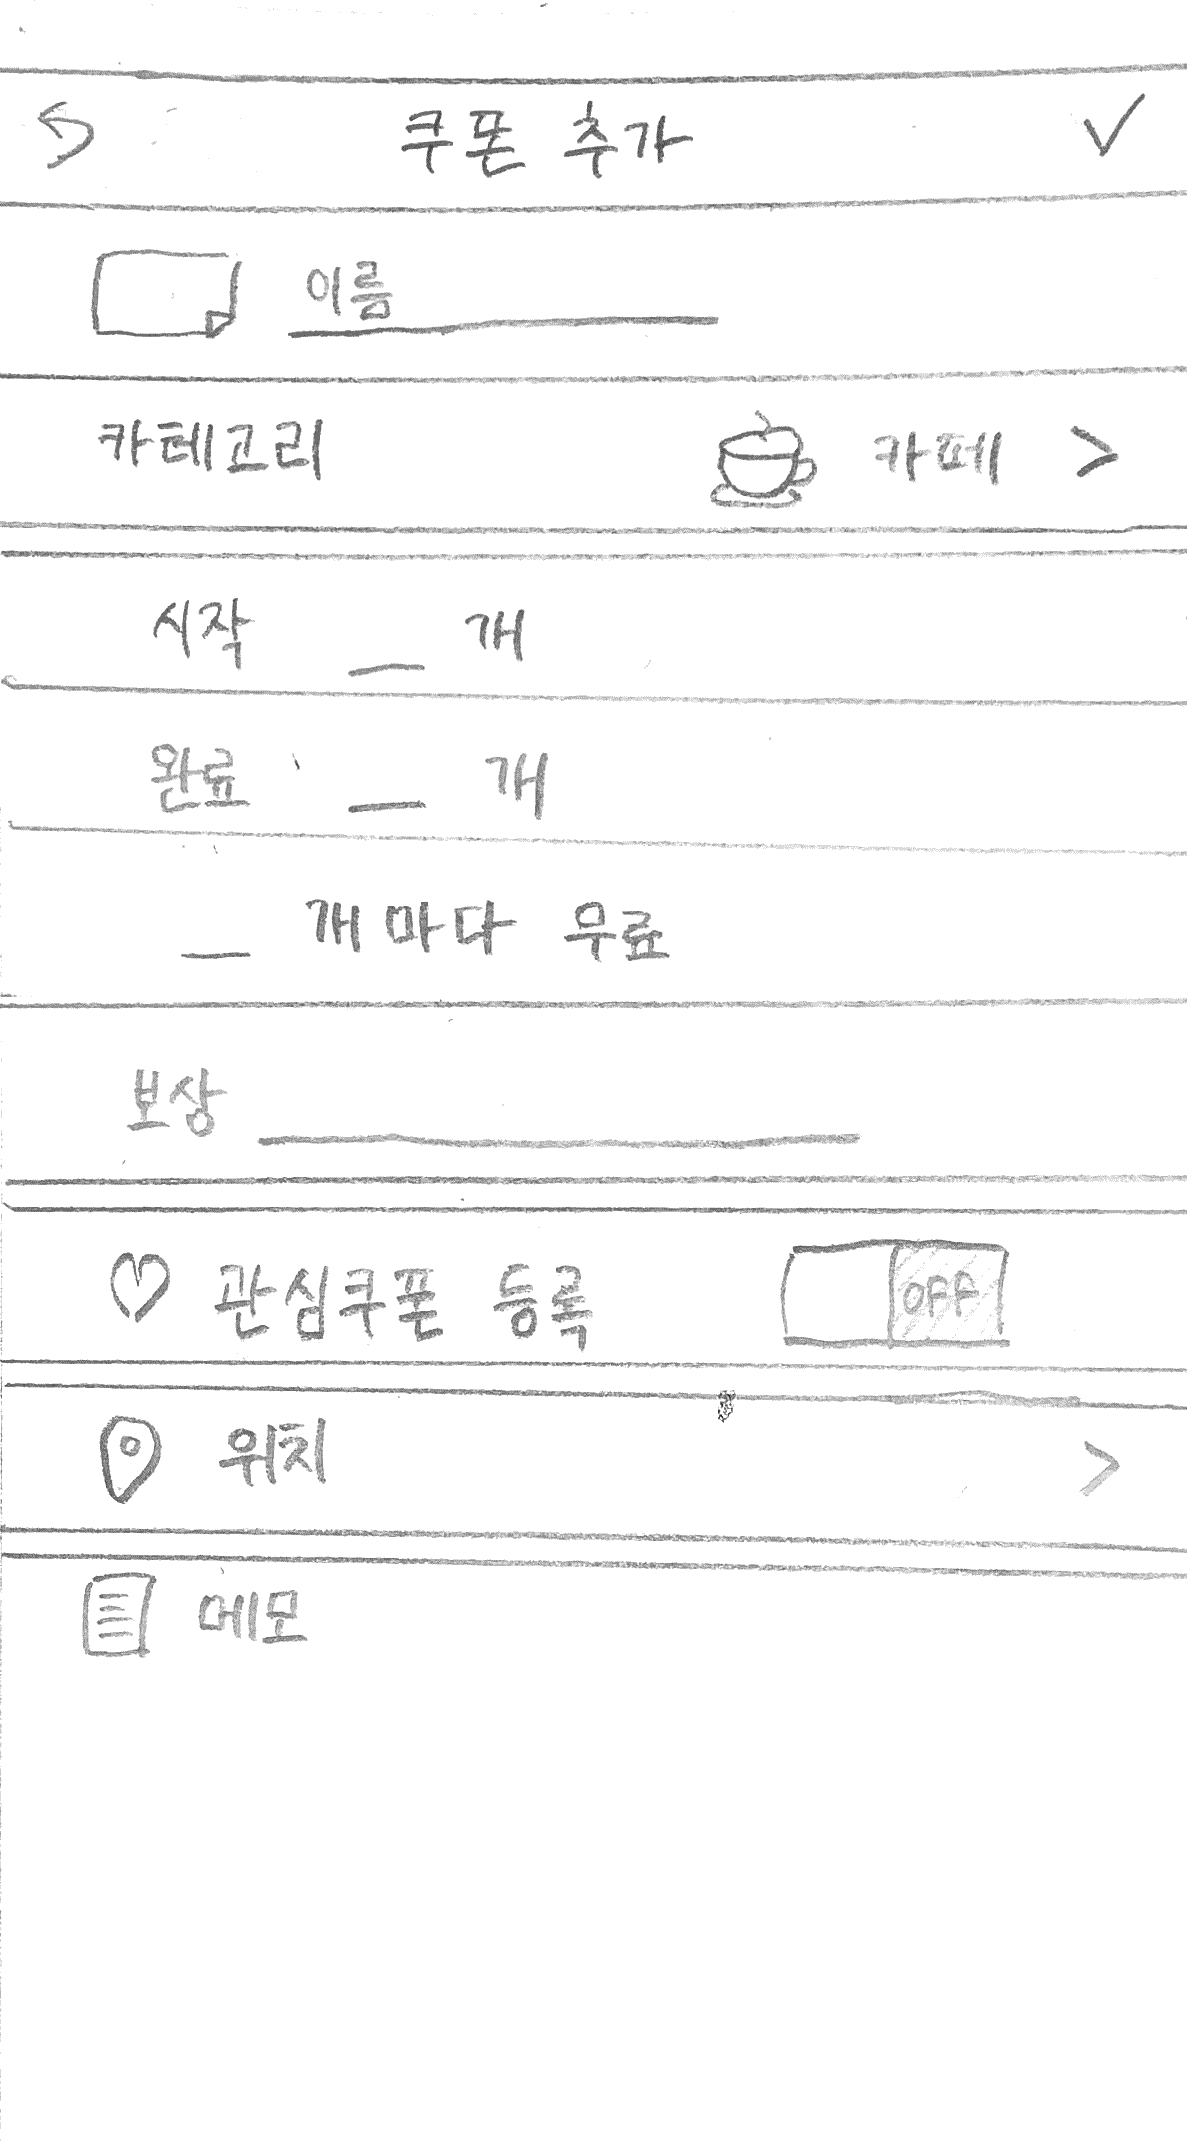 쿠폰 추가
이름
카테고리 카페 >
시작 __ 개
완료 __ 개
__ 개마다 무료
보상
관심쿠폰 등록 OFF
위치 >
메모